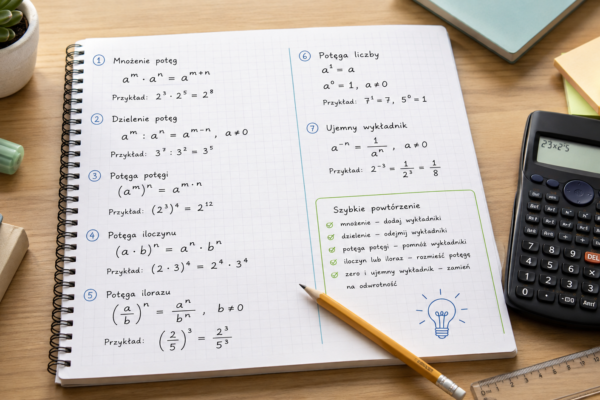 1 Mnożenie potęg
aᵐ · aⁿ = aᵐ⁺ⁿ
Przykład: 2³ · 2⁵ = 2⁸
2 Dzielenie potęg
aᵐ : aⁿ = aᵐ⁻ⁿ , a ≠ 0
Przykład: 3⁷ : 3² = 3⁵
3 Potęga potęgi
(aᵐ)ⁿ = aᵐ˙ⁿ
Przykład: (2³)⁴ = 2¹²
4 Potęga iloczynu
(a · b)ⁿ = aⁿ · bⁿ
Przykład: (2 · 3)⁴ = 2⁴ · 3⁴
5 Potęga ilorazu
(a/b)ⁿ = aⁿ/bⁿ , b ≠ 0
Przykład: (2/5)³ = 2³/5³
6 Potęga liczby
a¹ = a
a⁰ = 1, a ≠ 0
Przykład: 7¹ = 7, 5⁰ = 1
7 Ujemny wykładnik
a⁻ⁿ = 1/aⁿ , a ≠ 0
Przykład: 2⁻³ = 1/2³ = 1/8
Szybkie powtórzenie
mnożenie – dodaj wykładniki
dzielenie – odejmij wykładniki
potęga potęgi – pomnóż wykładniki
iloczyn lub iloraz – rozmieść potęgę
zero i ujemny wykładnik – zamień
na odwrotność
DEL
7 8 9
4 5 6
1 2 3
0